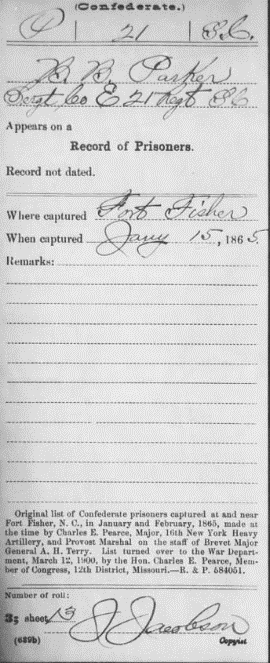 (Confederate.)
P | 21 | S.C.
B. B. Parker
Sergt Co E 21 Regt S C
Appears on a
Record of Prisoners.
Record not dated.
Where captured Fort Fisher
When captured Jany 15, 1865.
Remarks:
Original list of Confederate prisoners captured at and near
Fort Fisher, N. C., in January and February, 1865, made at
the time by Charles E. Pearce, Major, 16th New York Heavy
Artillery, and Provost Marshal on the staff of Brevet Major
General A. H. Terry. List turned over to the War Depart-
ment, March 12, 1900, by the Hon. Charles E. Pearce, Mem-
ber of Congress, 12th District, Missouri.—R. & P. 584051.
Number of roll:
sheet 13 J Jacobson
(639b) Copyist